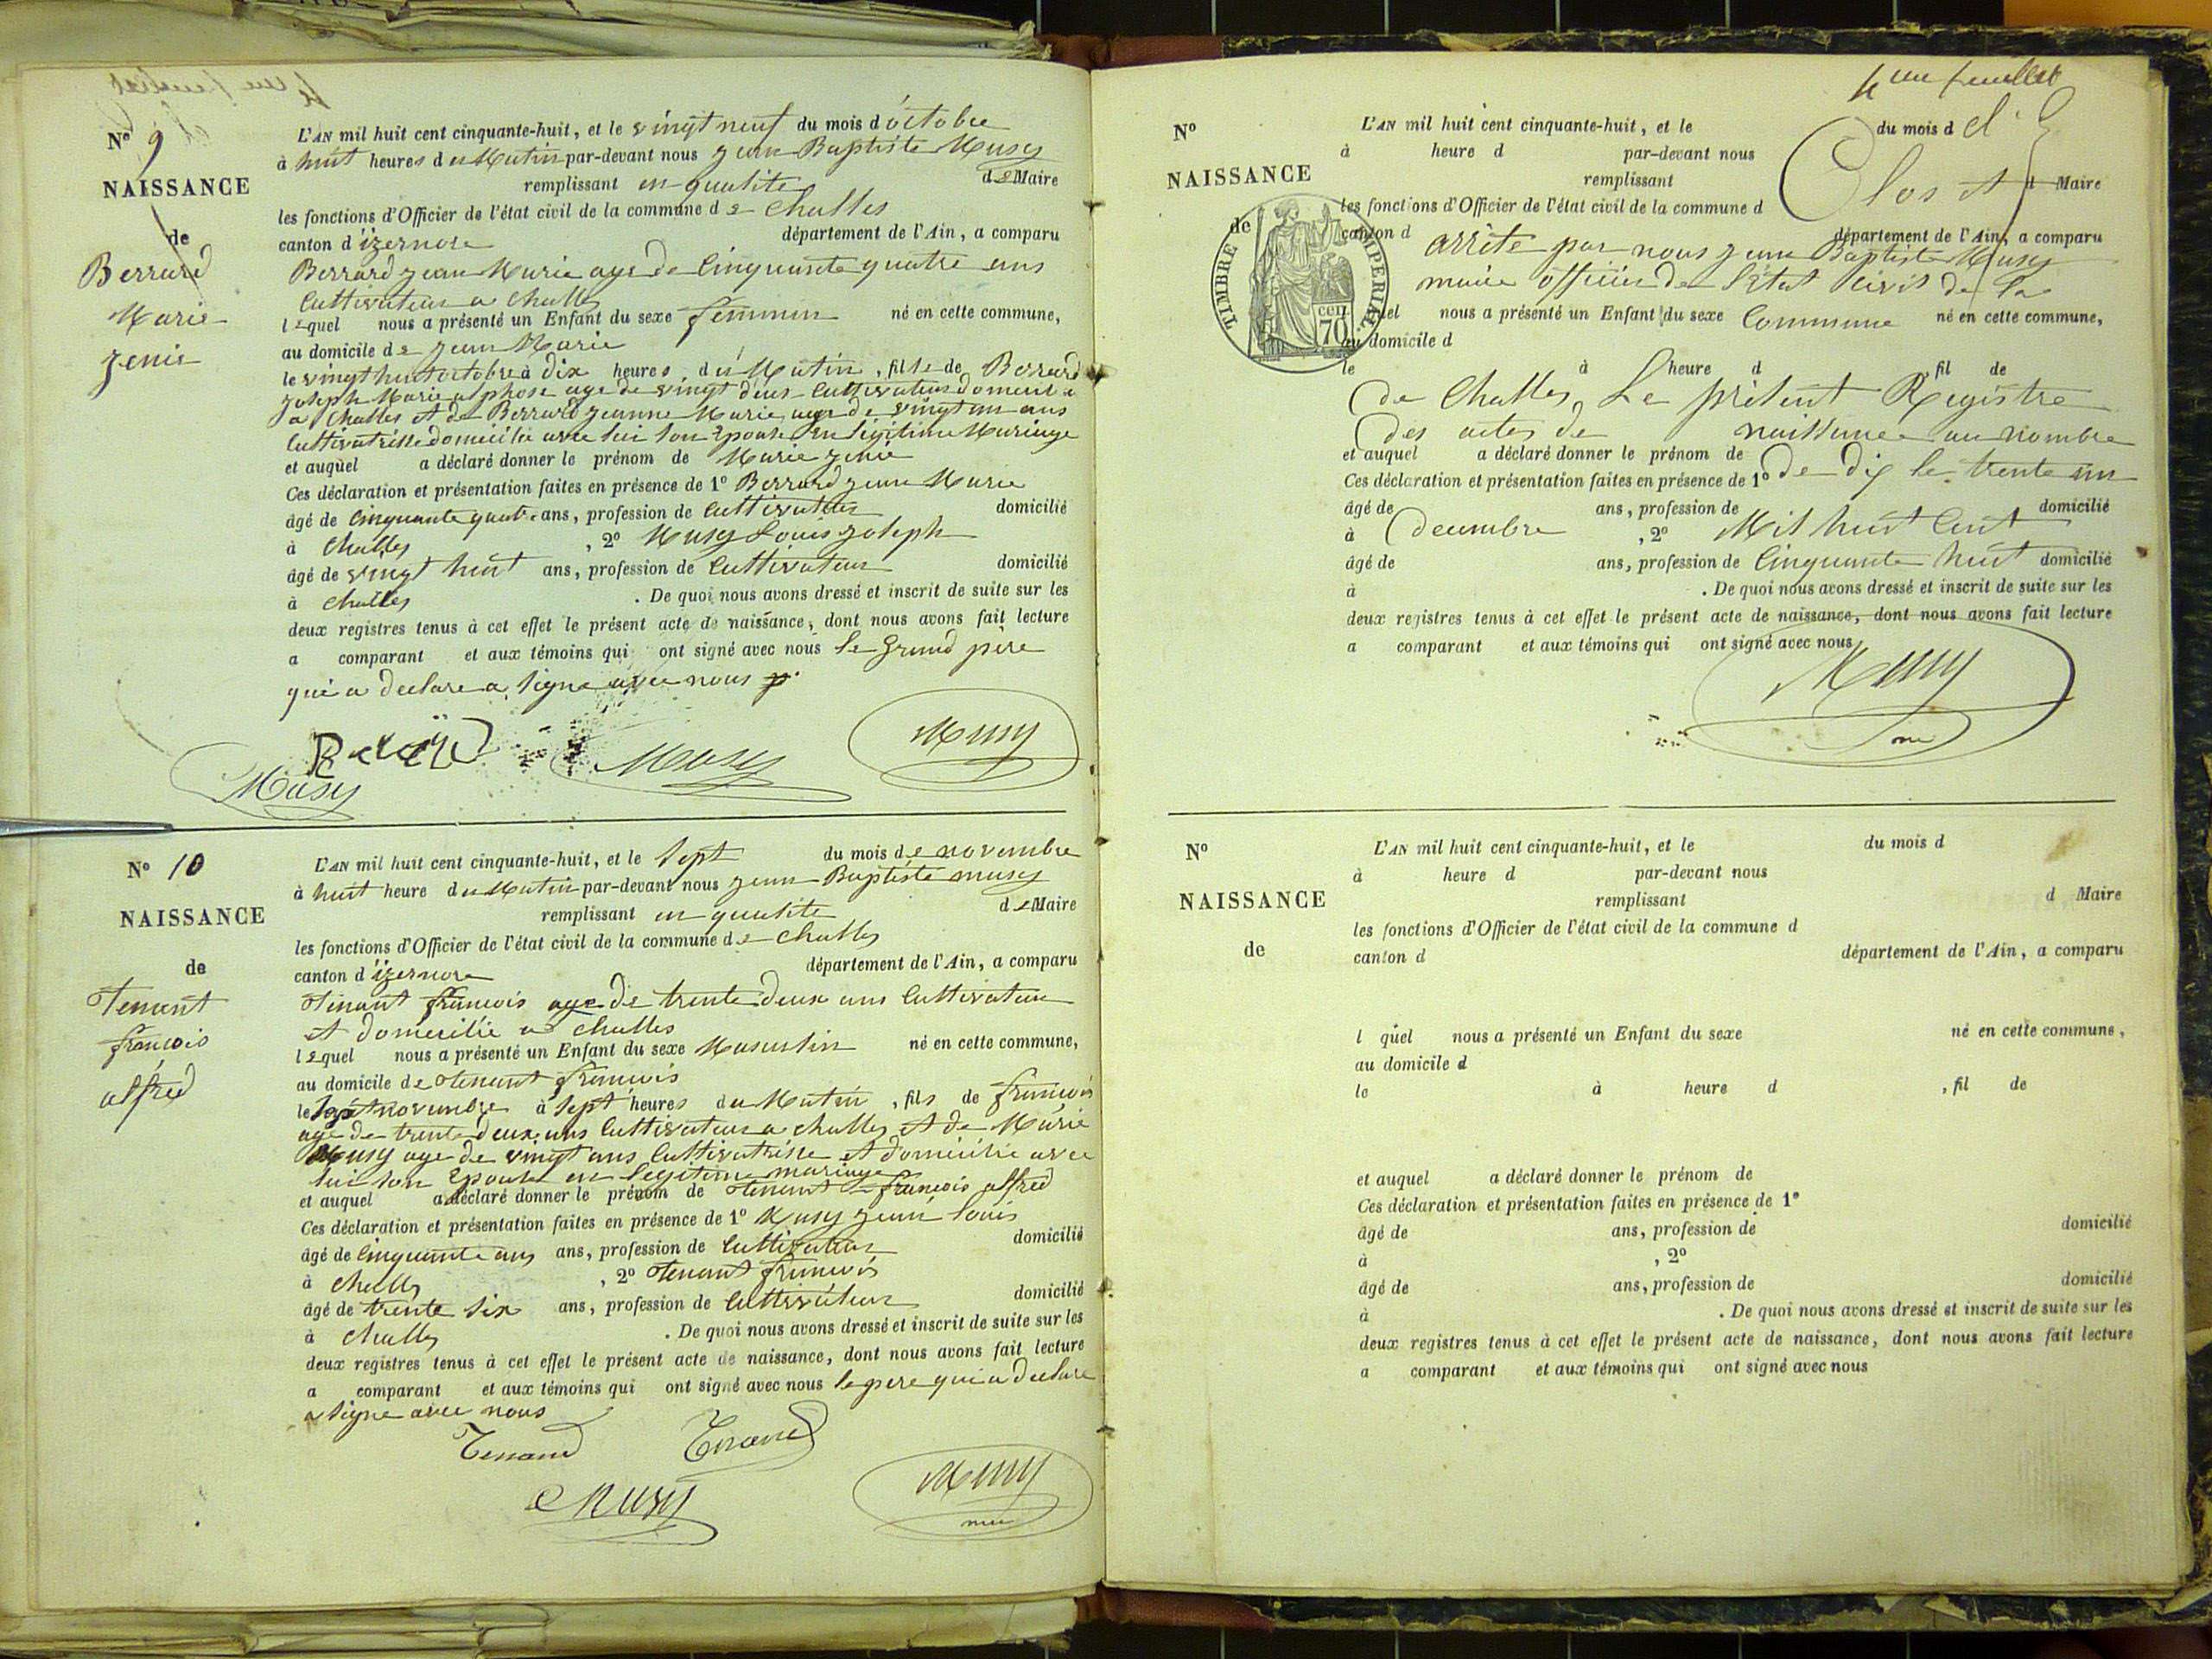 N° 9
NAISSANCE
de
Berrard
Marie
Zenie
L'AN mil huit cent cinquante-huit, et le vingt neuf du mois d'octobre
à huit heures du Matin par-devant nous jean Baptiste Musy
remplissant en qualite de Maire
les fonctions d'Officier de l'état civil de la commune de Challes
canton d'izernore département de l'Ain, a comparu
Berrard jean Marie age de Cinquante quatre ans
Cultivateur a Challes
lequel nous a présenté un Enfant du sexe feminin né en cette commune,
au domicile de jean Marie
le vingt huit octobre à dix heures du Matin, fille de Berrard
joseph Marie alphose age de vingt deux Cultivateur domicilie
a Challes et de Berrard jeanne Marie agee de vingt un ans
Cultivatrisse domiciliée avec lui son Epouse en légitime Mariage
et auquel a déclaré donner le prénom de Marie Zenie
Ces déclaration et présentation faites en présence de 1° Berrard jean Marie
âgé de Cinquante quatre ans, profession de Cultivateur domicilié
à Challes, 2° Musy Louis joseph
âgé de vingt huit ans, profession de Cultivateur domicilié
à Challes. De quoi nous avons dressé et inscrit de suite sur les
deux registres tenus à cet effet le présent acte de naissance, dont nous avons fait lecture
a comparant et aux témoins qui ont signé avec nous le Grand père
qui a declare a signe avec nous
Musy Musy
Musy
N° 10
NAISSANCE
de
Tenant
françois
alfred
L'AN mil huit cent cinquante-huit, et le Sept du mois de novembre
à huit heure du Matin par-devant nous jean Baptiste musy
remplissant en qualite de Maire
les fonctions d'Officier de l'état civil de la commune de Challes
canton d'izernore département de l'Ain, a comparu
Tenant françois age de trente deux ans Cultivateur
et domicilie a Challes
lequel nous a présenté un Enfant du sexe Masculin né en cette commune,
au domicile de Tenant françois
le Sept novembre à Sept heures du Matin, fils de françois
age de trente deux ans Cultivateur a Challes et de Marie
Musy age de vingt ans Cultivatrisse et domiciliée avec
lui son Epouse en legitime mariage
et auquel a déclaré donner le prénom de Tenant françois alfred
Ces déclaration et présentation faites en présence de 1° Musy jean louis
âgé de Cinquante ans ans, profession de Cultivateur domicilié
à Challes, 2° Tenant françois
âgé de trente six ans, profession de Cultivateur domicilié
à Challes. De quoi nous avons dressé et inscrit de suite sur les
deux registres tenus à cet effet le présent acte de naissance, dont nous avons fait lecture
a comparant et aux témoins qui ont signé avec nous le pere qui a declare
a signe avec nous
Tenand Tenand
Musy Musy
4eme feuillet
N°
NAISSANCE
de
TIMBRE IMPERIAL
70 cen
L'AN mil huit cent cinquante-huit, et le du mois d
à heure d par-devant nous
Clos et
remplissant d Maire
les fonctions d'Officier de l'état civil de la commune d
canton d département de l'Ain, a comparu
arrete par nous jean Baptiste Musy
maire officier de l'Etat Civil de la
l quel nous a présenté un Enfant du sexe Commune né en cette commune,
au domicile d
le à heure d , fil de
de Challes, Le présent Registre
des actes de naissance au nombre
et auquel a déclaré donner le prénom de
Ces déclaration et présentation faites en présence de 1° de dix le trente un
âgé de ans, profession de domicilié
à decembre , 2° Mil huit Cent
âgé de ans, profession de Cinquante huit domicilié
à . De quoi nous avons dressé et inscrit de suite sur les
deux registres tenus à cet effet le présent acte de naissance, dont nous avons fait lecture
a comparant et aux témoins qui ont signé avec nous
Musy
N°
NAISSANCE
de
L'AN mil huit cent cinquante-huit, et le du mois d
à heure d par-devant nous
remplissant d Maire
les fonctions d'Officier de l'état civil de la commune d
canton d département de l'Ain, a comparu
l quel nous a présenté un Enfant du sexe né en cette commune,
au domicile d
le à heure d , fil de
et auquel a déclaré donner le prénom de
Ces déclaration et présentation faites en présence de 1°
âgé de ans, profession de domicilié
à , 2°
âgé de ans, profession de domicilié
à . De quoi nous avons dressé et inscrit de suite sur les
deux registres tenus à cet effet le présent acte de naissance, dont nous avons fait lecture
a comparant et aux témoins qui ont signé avec nous